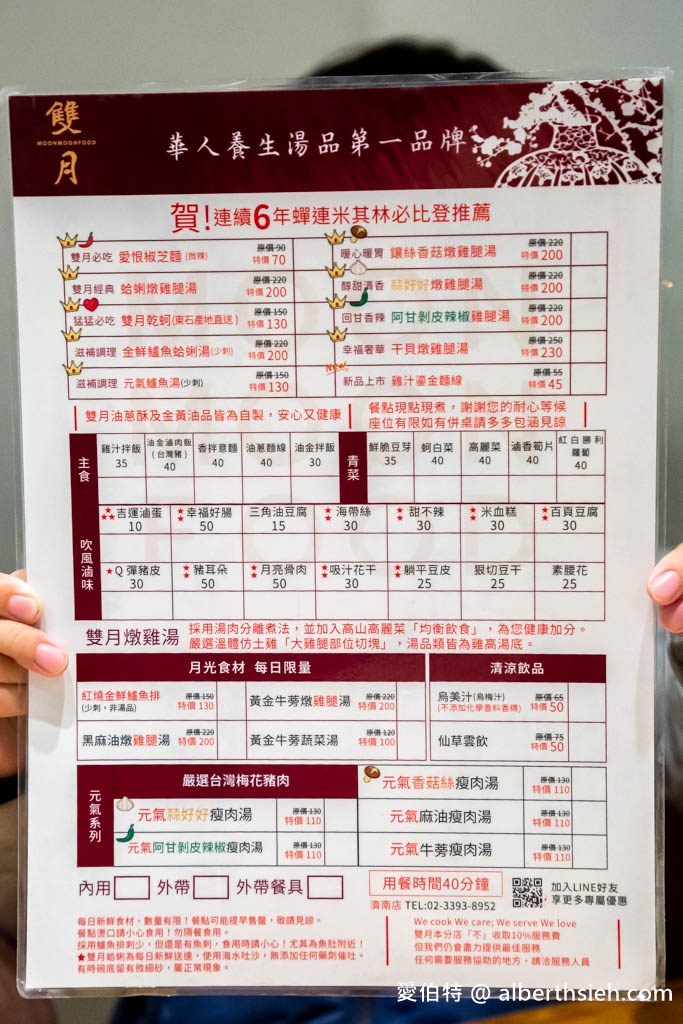 雙月
MOONMOONFOOD
華人養生湯品第一品牌
賀!連續6年蟬連米其林必比登推薦
雙月必吃 愛恨椒芝麵(微辣) 原價 90 特價 70
雙月經典 蛤蜊燉雞腿湯 原價 220 特價 200
猛猛必吃 雙月乾蚵(東石產地直送) 原價 150 特價 130
滋補調理 金鮮鱸魚蛤蜊湯(少刺) 原價 220 特價 200
滋補調理 元氣鱸魚湯(少刺) 原價 150 特價 130
暖心暖胃 鑲絲香菇燉雞腿湯 原價 220 特價 200
醇甜清香 蒜好好燉雞腿湯 原價 220 特價 200
回甘香辣 阿甘剝皮辣椒雞腿湯 原價 220 特價 200
幸福奢華 干貝燉雞腿湯 原價 250 特價 230
New
新品上市 雞汁鎏金麵線 原價 55 特價 45
雙月油蔥酥及金黃油品皆為自製,安心又健康
餐點現點現煮,謝謝您的耐心等候
座位有限如有併桌請多多包涵見諒
主食
雞汁拌飯 35
油金滷肉飯(台灣豬) 40
香拌意麵 40
油蔥麵線 40
油金拌飯 30
青菜
鮮脆豆芽 35
蚵白菜 40
高麗菜 40
滷香筍片 40
紅白勝利蘿蔔 40
吹風滷味
★★★吉運滷蛋 10
★★幸福好腸 50
三角油豆腐 15
★★海帶絲 30
★★甜不辣 30
★★米血糕 30
★★百頁豆腐 30
★Q彈豬皮 30
★★豬耳朵 50
★★月亮骨肉 50
★★吸汁花干 30
★★躺平豆皮 25
狠切豆干 25
素腰花 25
雙月燉雞湯
採用湯肉分離煮法,並加入高山高麗菜「均衡飲食」,為您健康加分。
嚴選溫體仿土雞「大雞腿部位切塊」,湯品類皆為雞高湯底。
月光食材 每日限量
紅燒金鮮鱸魚排(少刺,非湯品) 原價 150 特價 130
黃金牛蒡燉雞腿湯 原價 220 特價 200
黑麻油燉雞腿湯 原價 220 特價 200
黃金牛蒡蔬菜湯 原價 120 特價 100
清涼飲品
烏美汁(烏梅汁)
(不添加化學香料香精) 原價 65 特價 50
仙草雲飲 原價 75 特價 50
元氣系列
嚴選台灣梅花豬肉
元氣蒜好好瘦肉湯 原價 130 特價 110
元氣阿甘剝皮辣椒瘦肉湯 原價 130 特價 110
元氣香菇絲瘦肉湯 原價 130 特價 110
元氣麻油瘦肉湯 原價 130 特價 110
元氣牛蒡瘦肉湯 原價 130 特價 110
內用 外帶 外帶餐具
用餐時間40分鐘
濟南店 TEL:02-3393-8952
加入LINE好友
享更多專屬優惠
每日新鮮食材,數量有限!餐點可能提早售罄,敬請見諒。
餐點燙口請小心食用!勿隔餐食用。
採用鱸魚排刺少,但還是有魚刺,食用時請小心!尤其為魚肚附近!
★雙月蛤蜊為每日新鮮送達,使用海水吐沙,無添加任何藥劑催吐。
有時碗底留有微細砂,屬正常現象。
We cook We care; We serve We love
雙月本分店「不」收取10%服務費
但我們仍會盡力提供最佳服務
任何需要服務協助的地方,請洽服務人員
愛伯特 @ alberthsieh.com